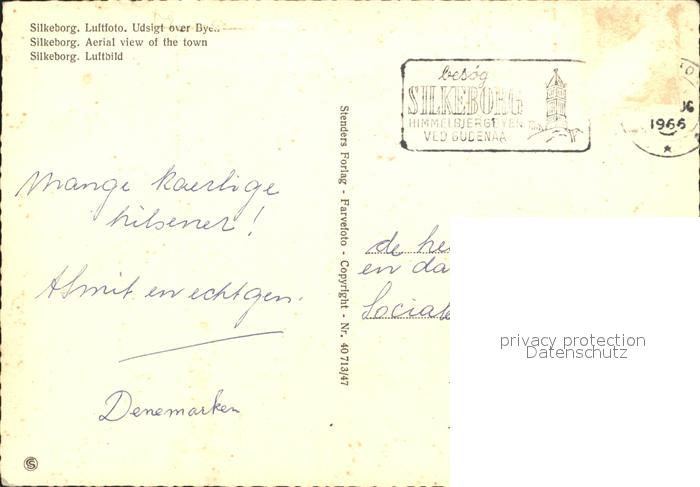 Silkeborg. Luftfoto. Udsigt over Byen.
Silkeborg. Aerial view of the town
Silkeborg. Luftbild
besøg
SILKEBORG
HIMMELBJERGEVEN
VED GUDENAA
1966
Stenders Forlag - Farvefoto - Copyright - Nr. 40 713/47
Mange kaerlige
hilsener!
en echtgen.
Denemarken
de he
en da
Sociale
privacy protection
Datenschutz